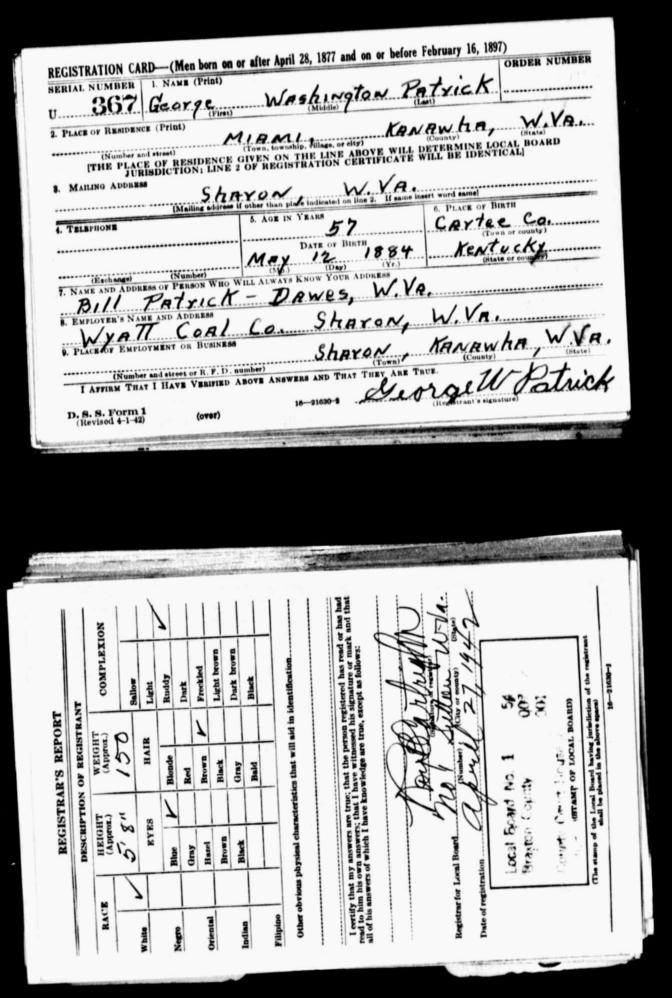 REGISTRATION CARD—(Men born on or after April 28, 1877 and on or before February 16, 1897)
SERIAL NUMBER
1. NAME (Print)
ORDER NUMBER
U 367
George Washington Patrick
(First) (Middle) (Last)
2. PLACE OF RESIDENCE (Print)
MIAMI, KANAWHA, W.VA.
(Number and street) (Town, township, village, or city) (County) (State)
[THE PLACE OF RESIDENCE GIVEN ON THE LINE ABOVE WILL DETERMINE LOCAL BOARD
JURISDICTION; LINE 2 OF REGISTRATION CERTIFICATE WILL BE IDENTICAL]
3. MAILING ADDRESS
SHARON W.VA.
[Mailing address if other than place indicated on line 2. If same insert word same]
4. TELEPHONE
5. AGE IN YEARS
6. PLACE OF BIRTH
57
Carter Co.
(Town or county)
DATE OF BIRTH
May 12 1884
Kentucky
(Exchange) (Number)
(Mo.) (Day) (Yr.)
(State or country)
7. NAME AND ADDRESS OF PERSON WHO WILL ALWAYS KNOW YOUR ADDRESS
Bill Patrick - Dawes, W.VA.
8. EMPLOYER'S NAME AND ADDRESS
Wyatt Coal Co. Sharon, W.VA.
9. PLACE OF EMPLOYMENT OR BUSINESS
SHARON, KANAWHA, W.VA.
(Number and street or R. F. D. number) (Town) (County) (State)
I AFFIRM THAT I HAVE VERIFIED ABOVE ANSWERS AND THAT THEY ARE TRUE.
George W Patrick
D. S. S. Form 1
(Revised 4-1-42)
(over)
16—21630-2
(Registrant's signature)
REGISTRAR'S REPORT
DESCRIPTION OF REGISTRANT
RACE
HEIGHT (Approx.)
WEIGHT (Approx.)
COMPLEXION
White ✓
5' 8"
150
Sallow
EYES
HAIR
Light
Negro
Blue ✓
Blonde
Ruddy ✓
Gray
Red
Dark
Oriental
Hazel
Brown ✓
Freckled
Brown
Black
Light brown
Indian
Black
Gray
Dark brown
Bald
Black
Filipino
Other obvious physical characteristics that will aid in identification
I certify that my answers are true; that the person registered has read or has had
read to him his own answers; that I have witnessed his signature or mark and that
all of his answers of which I have knowledge are true, except as follows:
Registrar for Local Board No. 1
(Number) (City or county) (State)
Date of registration April 27, 1942
Local Board No. 1 54
Braxton County 007
001
(STAMP OF LOCAL BOARD)
(The stamp of the Local Board having jurisdiction of the registrant
shall be placed in the above space)